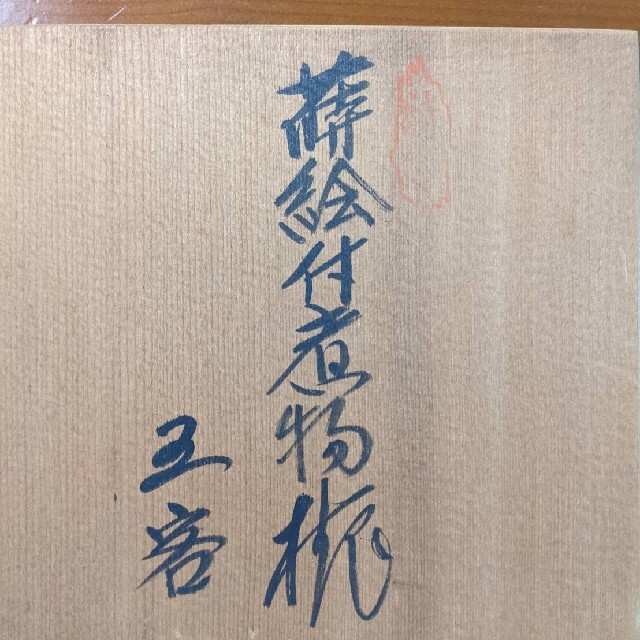 蒔絵付煮物椀
五客